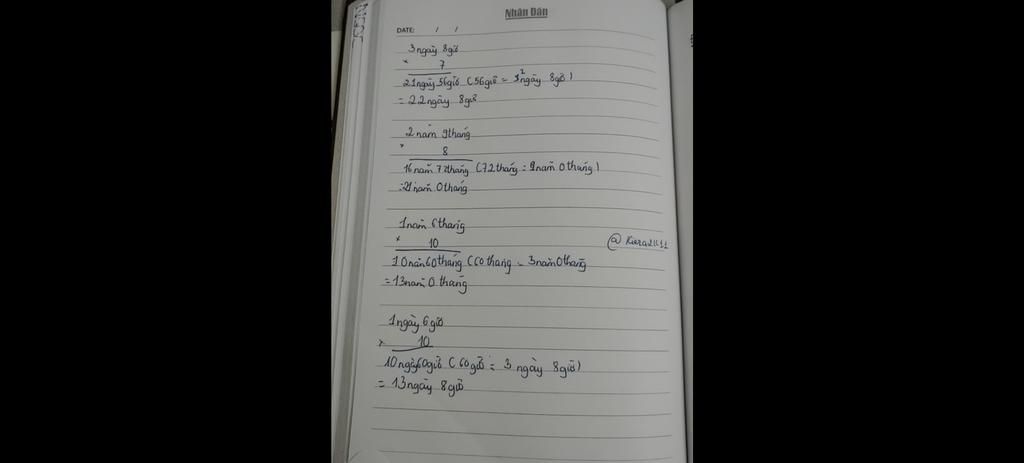 Nhân Dân
DATE: / /
3 ngày 8 giờ
× 7
21 ngày 56 giờ (56 giờ = 2 ngày 8 giờ)
= 22 ngày 8 giờ
2 năm 9 tháng
× 8
16 năm 72 tháng (72 tháng = năm 0 tháng)
= 21 năm 0 tháng
1 năm 6 tháng
× 10
@
10 năm 60 tháng (60 tháng = 3 năm 0 tháng
= 13 năm 0 tháng
1 ngày 6 giờ
× 10
10 ngày 60 giờ (60 giờ = 3 ngày 8 giờ)
= 13 ngày 8 giờ